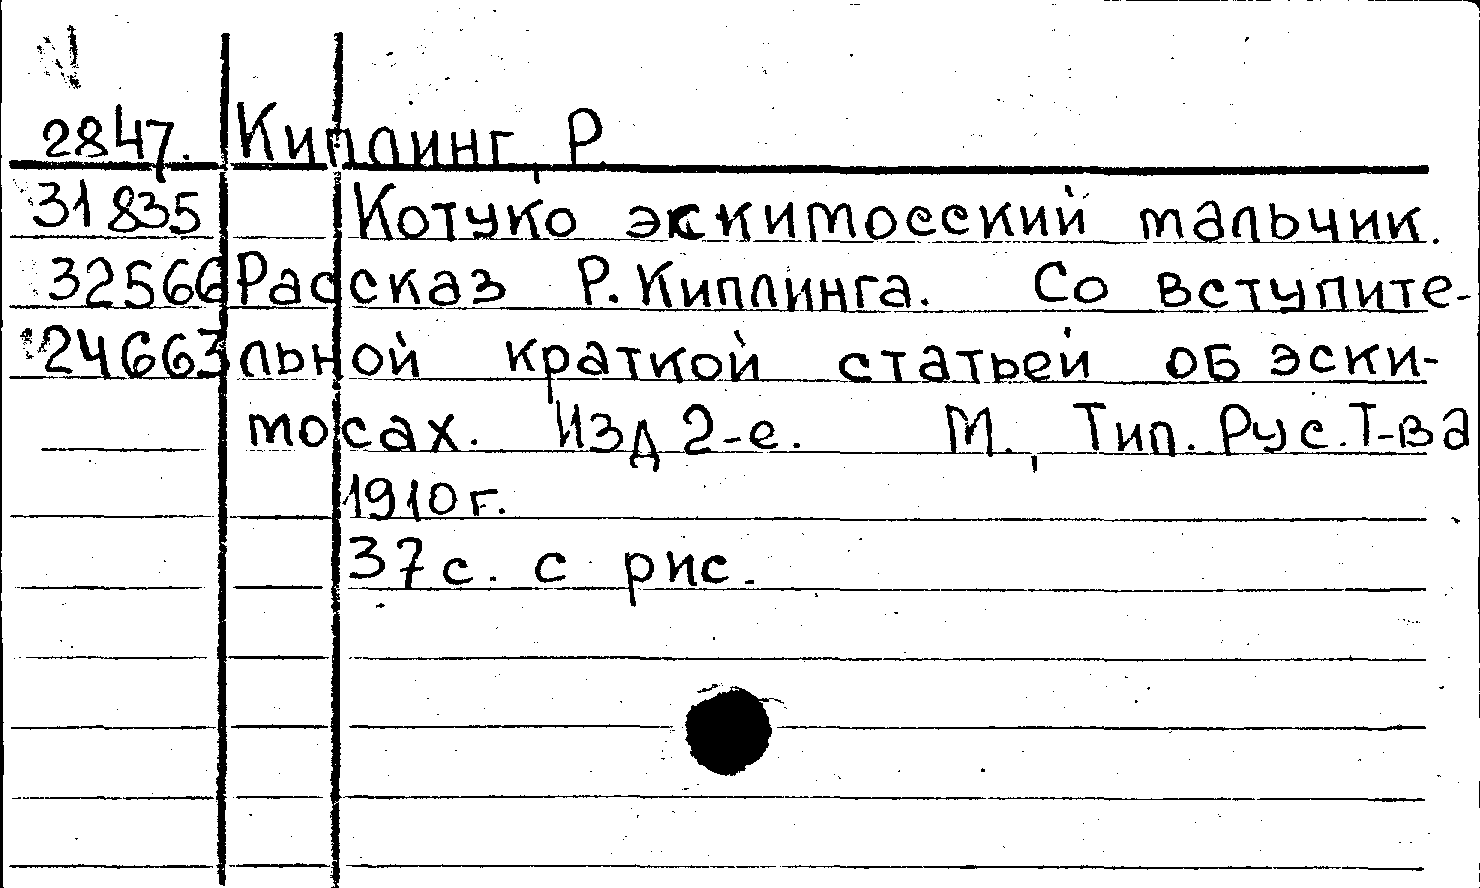 N
2847. Киплинг, Р.
31835 Котуко эскимосский мальчик.
32566 Рассказ Р. Киплинга. Со вступите-
24663 льной краткой статьей об эски-
мосах. Изд 2-е. М., Тип. Рус. Т-ва
1910 г.
37 с. с рис.